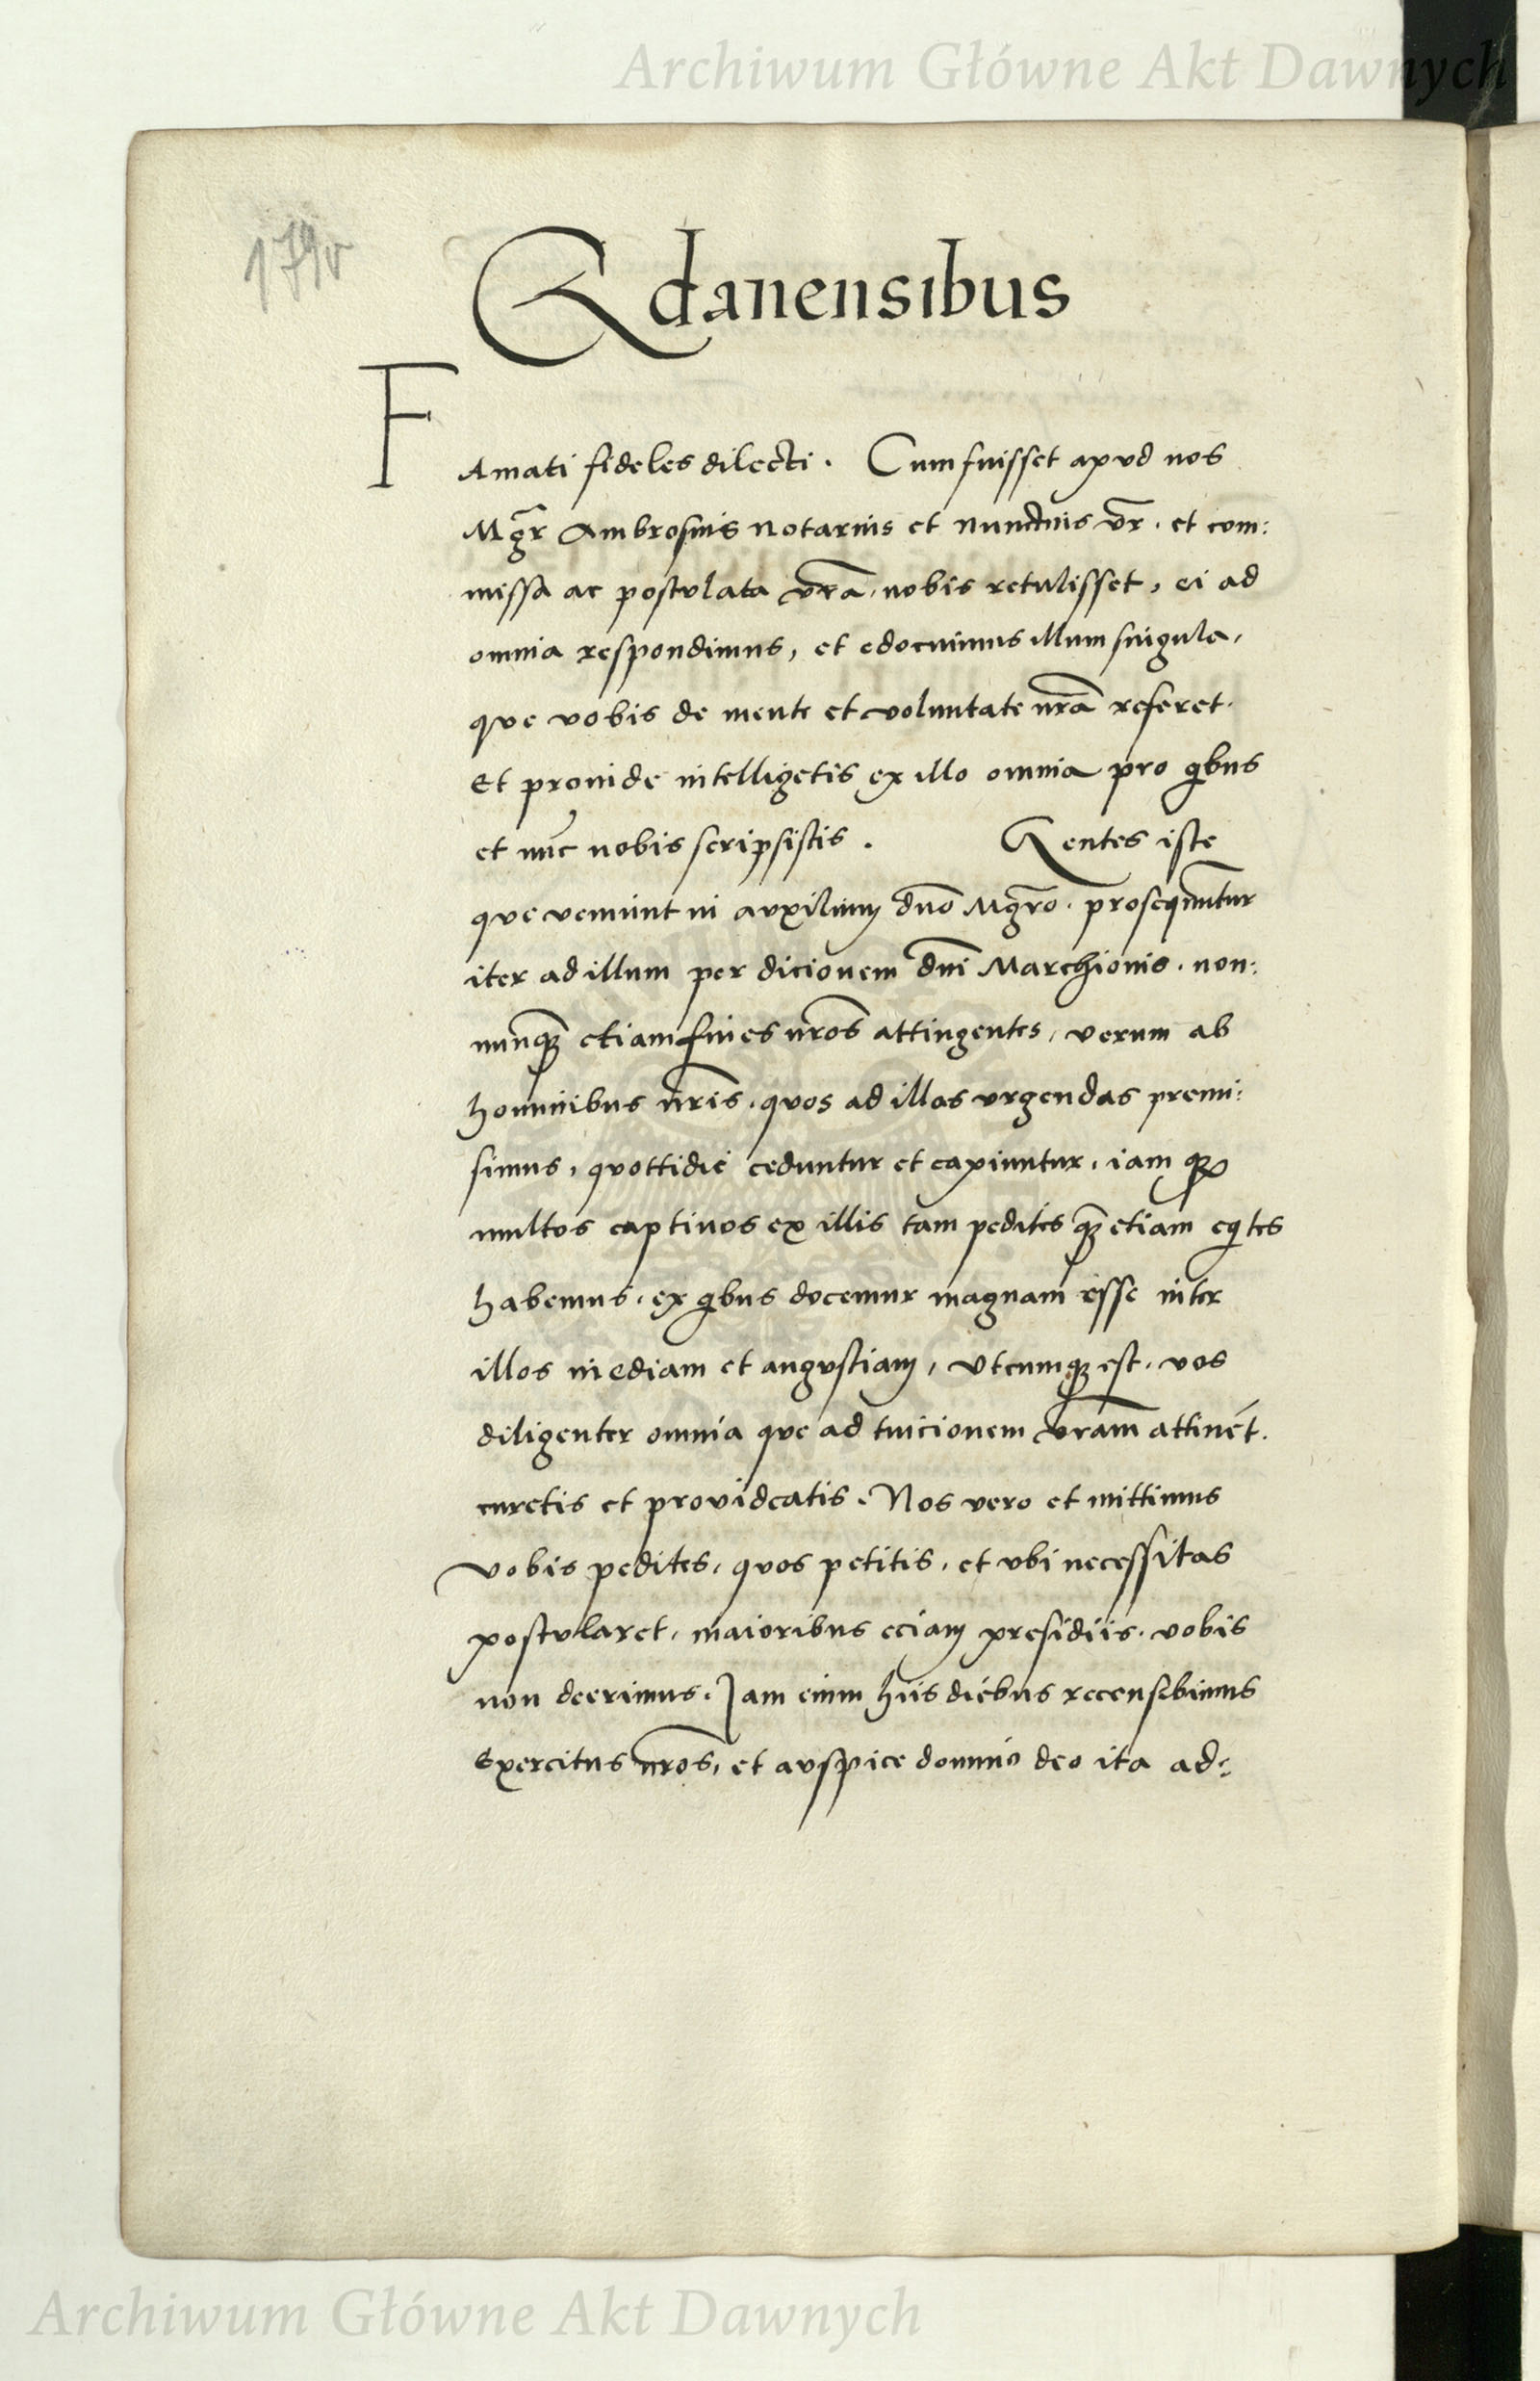 Archiwum Główne Akt Dawnych
179v
Gdanensibus
FAmati fideles dilecti. Cum fuisset apud nos
Mgr̄ Ambrosius notarius et nunctius vr̄. et com:
missa ac postulata vrā. nobis retulisset, ei ad
omnia respondimus, et edocuimus illum singula,
que vobis de mente et voluntate nrā referet.
Et proinde intelligetis ex illo omnia pro qibus
et nūc nobis scripsistis. Gentes iste
que veniunt in auxilium dno Mgro. prosequuntur
iter ad illum per dicionem dni Marchionis. non:
nunq̄ etiam fines nros attingentes, verum ab
hominibus nris. quos ad illas urgendas premi:
simus, quottidie ceduntur et capiuntur, iam q
multos captivos ex illis tam pedites q̄ etiam eqites
habemus. ex qibus docemur magnam esse inter
illos inediam et angustiam, Utcumq est. vos
diligenter omnia que ad tuicionem vram attinēt.
curetis et provideatis. Nos vero et mittimus
vobis pedites, quos petitis, et ubi necessitas
postularet, maioribus eciam presidiis. vobis
non deerimus. Jam enim hiis diebus recensebimus
Exercitus nros, et auspice domino deo ita ad:
Archiwum Główne Akt Dawnych